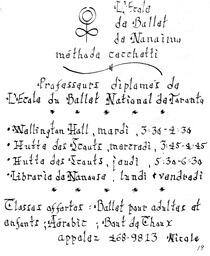 L'École
de Ballet
de Nanaimo
méthode cecchetti
Professeurs diplomés de
L'École du Ballet National de Toronto
• Wellington Hall, mardi, 3:30-4:30
• Hutte des Scouts, mercredi, 3:45-4:45
• Hutte des Scouts, jeudi, 5:30-6:30
• Librarie de Nanoose, lundi & vendredi
Classes offertes: Ballet pour adultes et
enfants; Aérobic; Bout de Choux
appelez 468-9813 Nicole